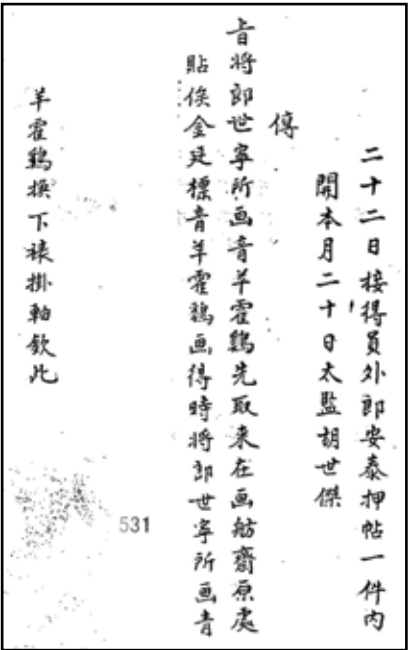 二十二日接得員外郎安泰押帖一件内
開本月二十日太監胡世傑
傳
旨將郎世寧所画青羊霍鷄先取来在画舫齋原處
貼俟金廷標青羊霍鷄画得時將郎世寧所画青
羊霍鷄換下裱掛軸欽此
531